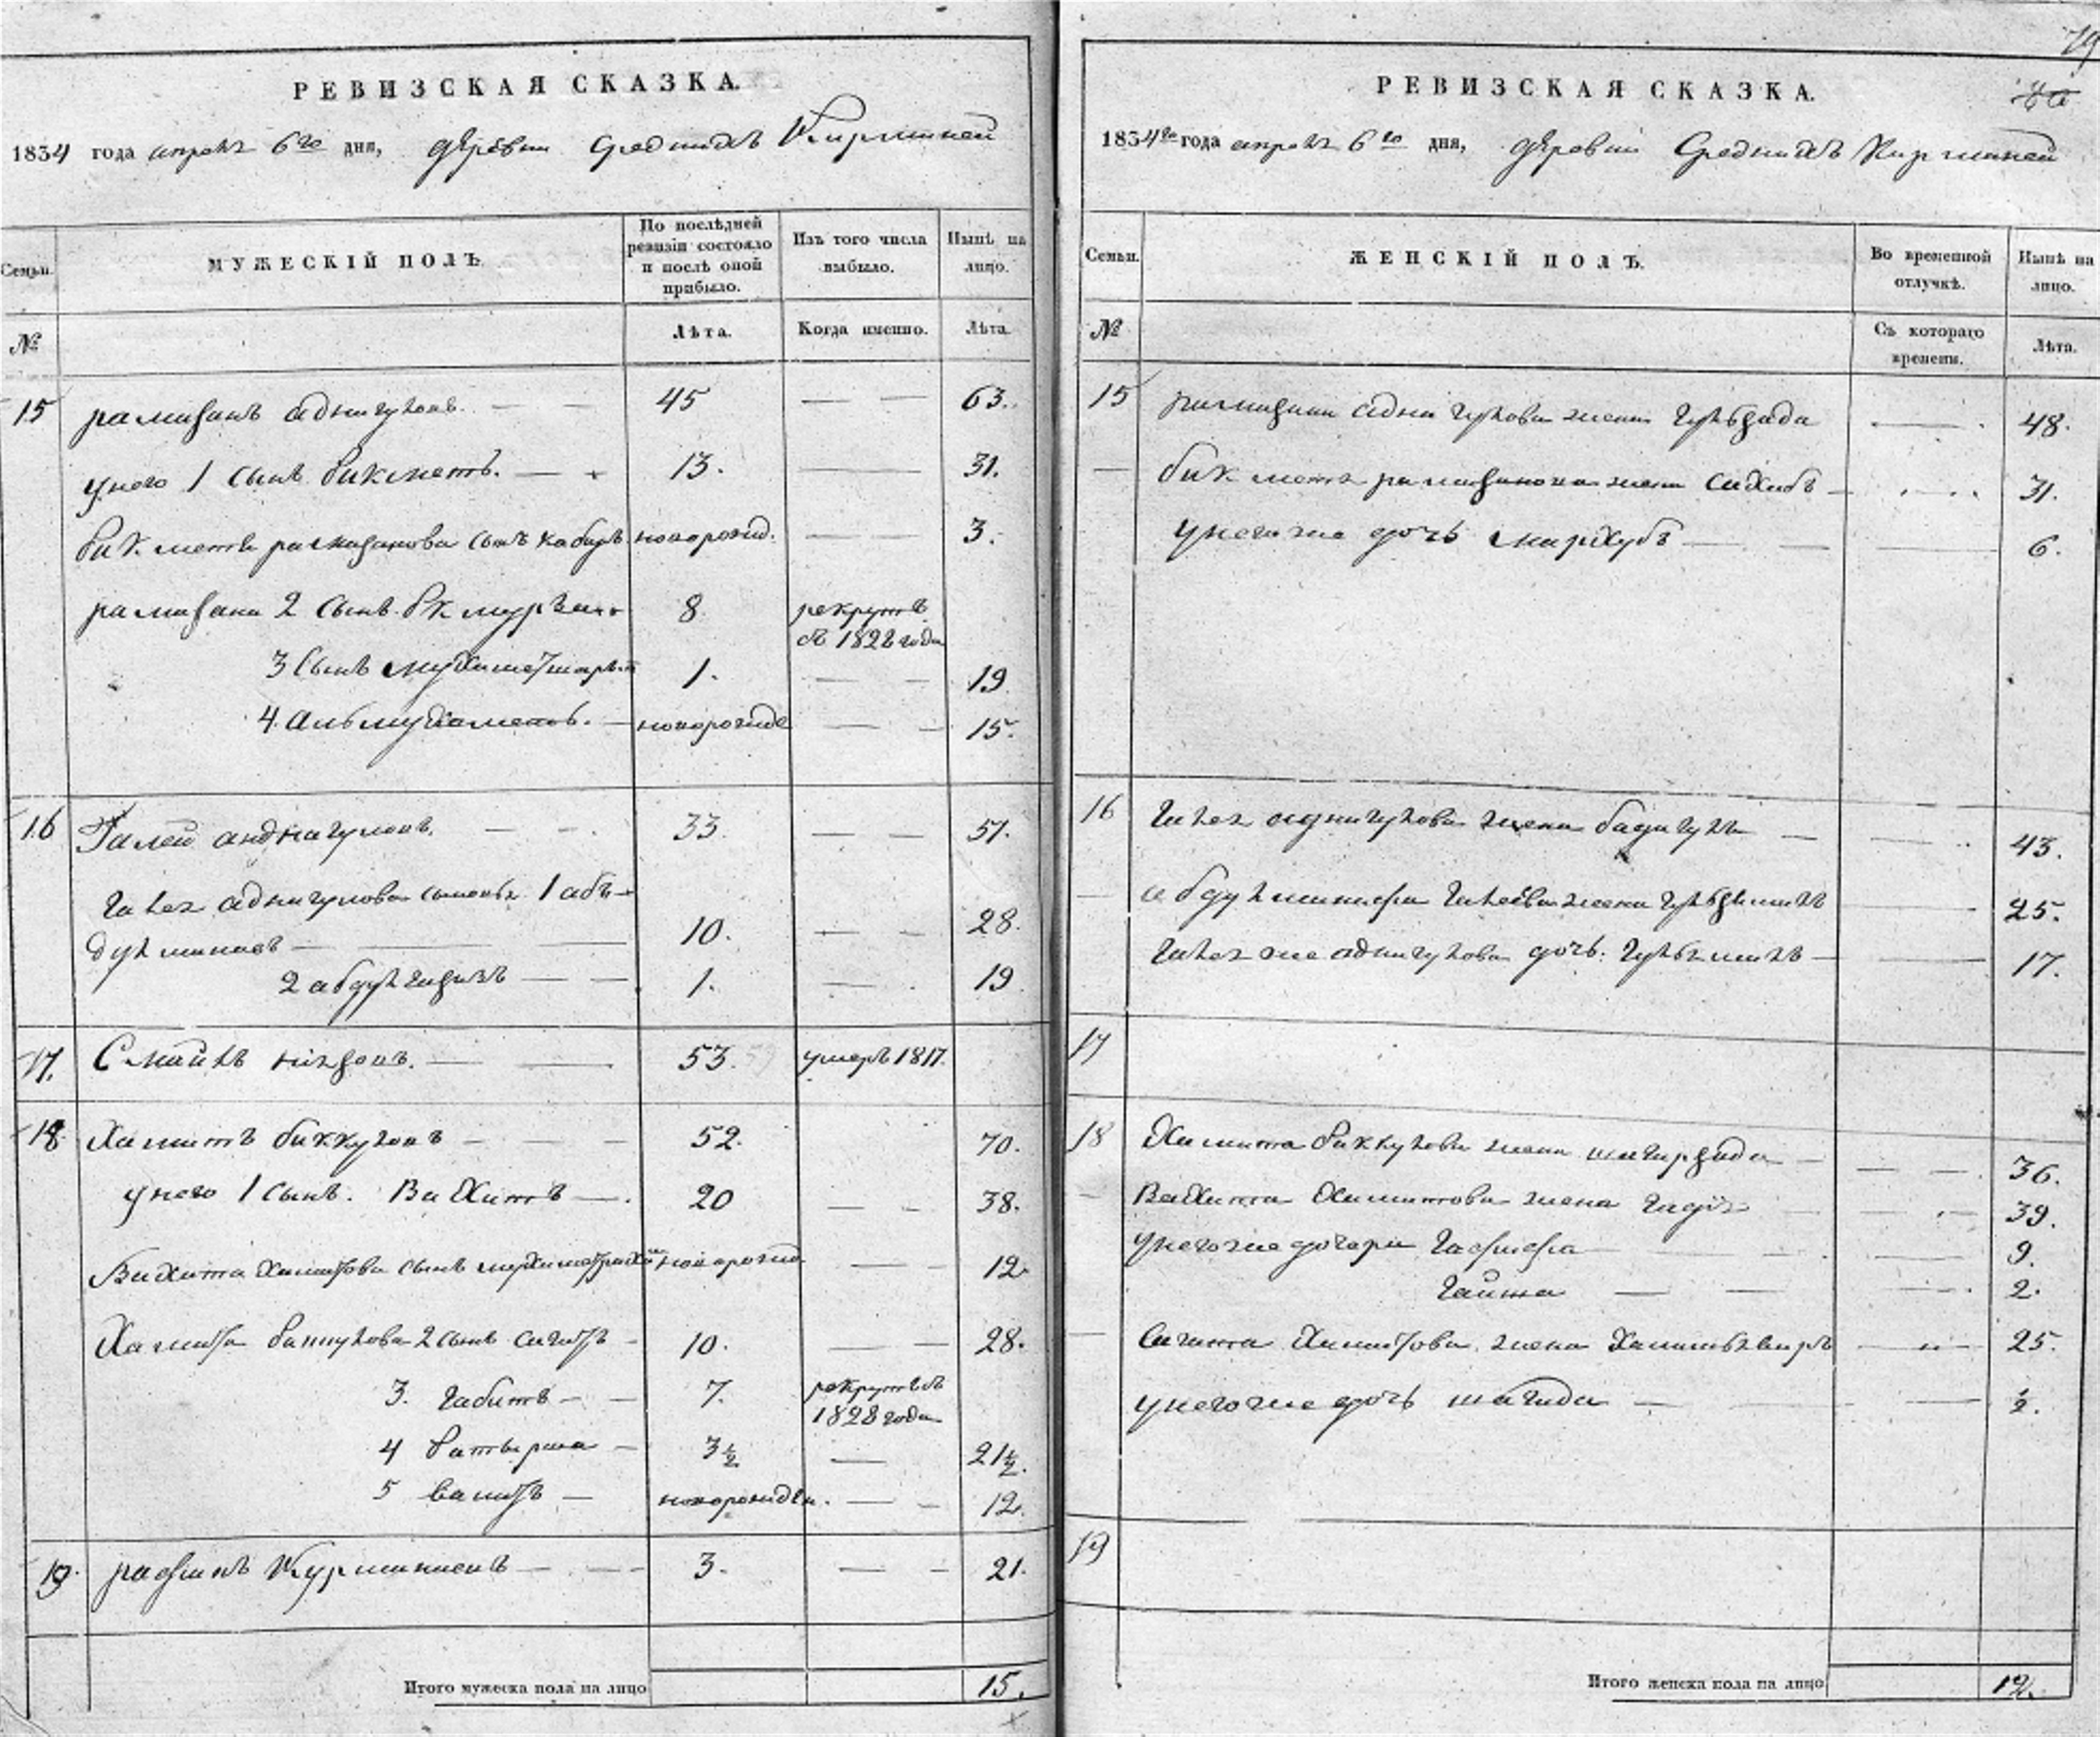 РЕВИЗСКАЯ СКАЗКА.
1834 года апреля 6го дня, деревни Среднихъ Кирминей
Семьи.
МУЖЕСКІЙ ПОЛЪ
По послѣдней ревизіи состояло и послѣ оной прибыло.
Изъ того числа выбыло.
Нынѣ на лицо.
№
Лѣта.
Когда именно.
Лѣта.
15 рамазанъ аднагуловъ. — — 45 — — 63.
у него 1 сынъ бикметъ. — 13. — 31.
бикметя рамазанова сынъ кабиръ новорожд. — — 3.
рамазана 2 сынъ 8 рекрутъ
въ 1828 года
3 сынъ 1. — — 19
4. альмухаметъ. — новорожде — — 15.
16 Галей аднагуловъ. — — 33. — — 51.
Галея аднагулова сыновья 1 аб-
дулманнафъ — 10. — — 28.
2 абдулгазизъ — — 1. — 19
17. Смаилъ — — 53. умеръ 1817.
18. Хамитъ биккуловъ — — — 52. 70.
у него 1 сынъ. Вахитъ — 20 — — 38.
Вахита Хамитова сынъ новорожд — — 12.
Хамита биккулова 2 сынъ сагитъ — 10. — — 28.
3. габитъ — — 7. рекрутъ въ
1828 года
4 батырша — 3½ — 21½.
5 валитъ — новорожден. — — 12.
19. Курманаевъ — — — 3. — — 21.
Итого мужеска пола на лицо 15.
79
РЕВИЗСКАЯ СКАЗКА.
1834го года апреля 6го дня, деревни Среднихъ Кирминей
Семьи.
ЖЕНСКІЙ ПОЛЪ.
Во временной отлучкѣ.
Нынѣ на лицо.
№
Съ котораго времени.
Лѣта.
15 рамазана аднагулова жена гульзада — 48.
— бикметя рамазанова жена сахибъ — 31.
у него же дочь — — — 6.
16 Галея аднагулова жена бадигулъ — — 43.
— абдулманнафа Галеева жена — 25.
Галея же аднагулова дочь. — — 17.
17
18 Хамита биккулова жена — — — 36.
— Вахита Хамитова жена — — 39.
у него же дочери — — — 9.
гайша — — — 2.
— Сагита Хамитова жена — — 25.
у него же дочь шагида — — — ½.
19
Итого женска пола на лицо 12.